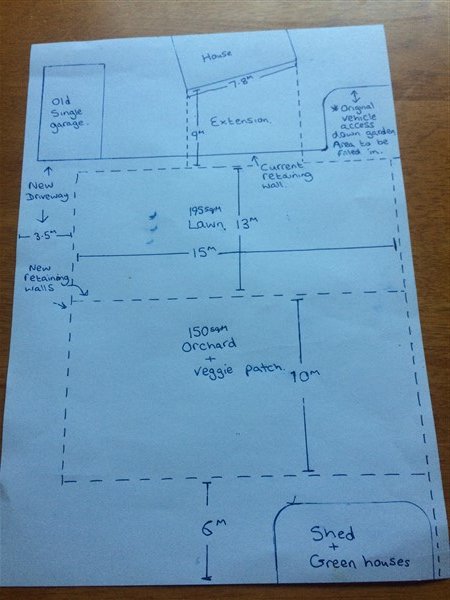 House
7.8M
Old
Single
garage.
9M
Extension.
* Original
vehicle
access
down garden
Area to be
filled in.
Current
retaining
wall.
New
Driveway
3.5M
195sqM
Lawn.
13M
15M
New
retaining
walls
150sqM
Orchard
+
veggie patch.
10M
6M
Shed
+
Green houses